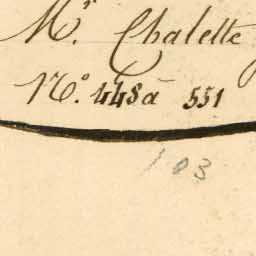 Mr. Chalette
No. 448 à 551
103